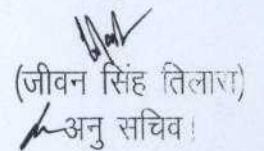 (जीवन सिंह तिलारा)
अनु सचिव।